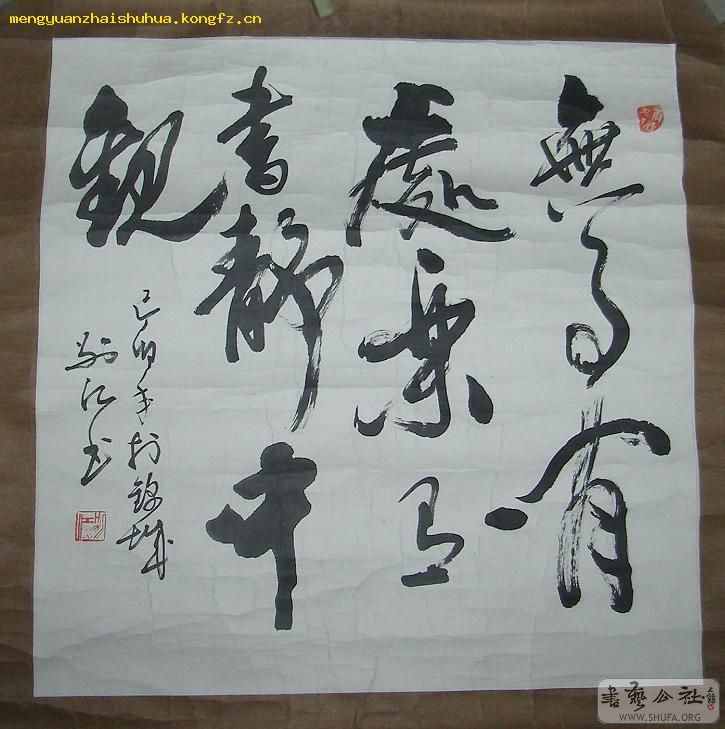 mengyuanzhaishuhua.kongfz.cn
無事有
處樂有
書静中
觀
己卯年於錦城
江书
書藝公社
WWW.SHUFA.ORG